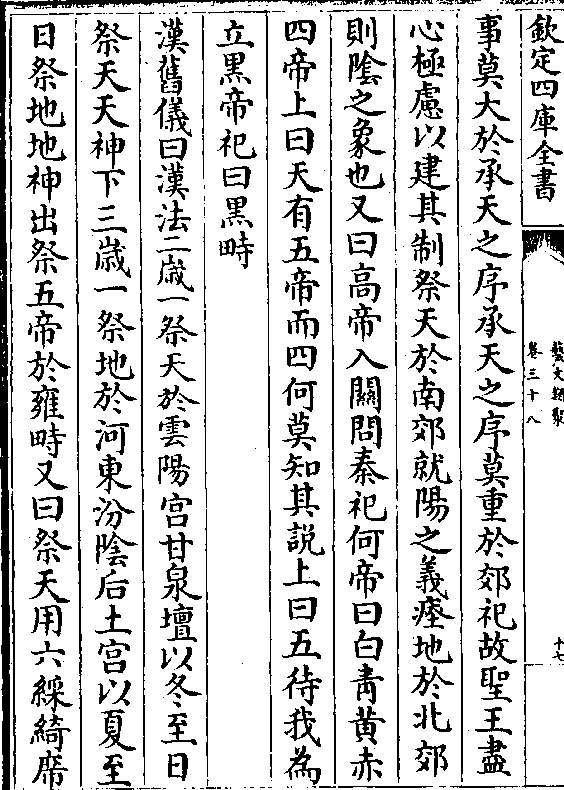 欽定四庫全書
藝文類聚
卷三十八
十七
事莫大於承天之序承天之序莫重於郊祀故聖王盡
心極慮以建其制祭天於南郊就陽之義瘞地於北郊
則隂之象也又曰高帝入關問秦祀何帝曰白青黃赤
四帝上曰天有五帝而四何莫知其説上曰五待我為
立黒帝祀曰黒畤
漢舊儀曰漢法二歲一祭天於雲陽宫甘泉壇以冬至日
祭天天神下三歲一祭地於河東汾隂后土宫以夏至
日祭地地神出祭五帝於雍畤又曰祭天用六綵綺席